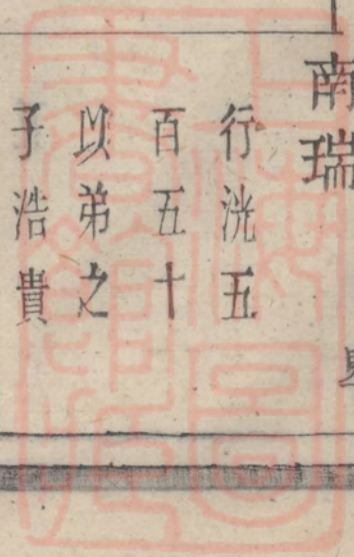 南瑞
行洸五
百五十
以弟之
子浩貴